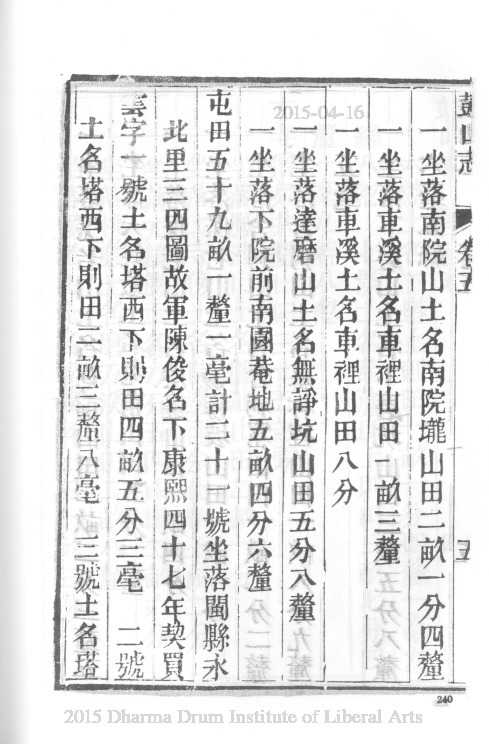 鼓山志 卷五 五
一坐落南院山土名南院壠山田二畝一分四釐
一坐落車溪土名車裡山田一畝三釐
一坐落車溪土名車裡山田八分
一坐落達磨山土名無諍坑山田五分八釐
一坐落下院前南園菴地五畝四分六釐
屯田五十九畝一釐一毫計二十一號坐落閩縣永
北里三四圖故軍陳俊名下康熙四十七年契買
雲字一號土名塔西下則田四畝五分三毫 二號
土名塔西下則田二畝三釐八毫 三號土名塔
240
2015-04-16
2015 Dharma Drum Institute of Liberal Arts